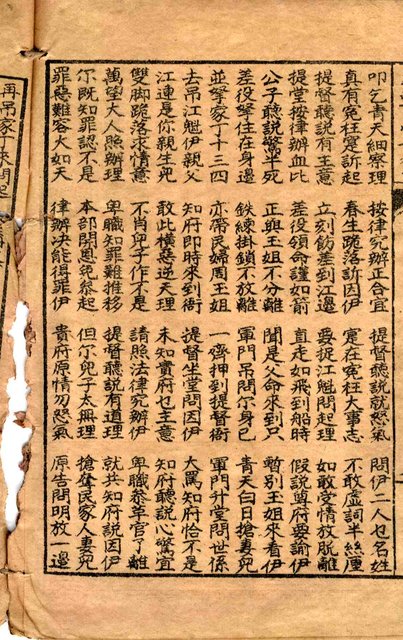 叩乞青天細察理 按律究辦正合宜 提督聽說就怒氣 問伊二人乜名姓
真有冤枉訴起 春生跪落訴因伊 寔在冤枉大事志 不敢虛詞半絲厘
提督聽說有主意 立刻飭差到江邊 要捉江魁問起理 如敢堂情放脫離
提堂按律辦血比 差役領命謹如箭 直走如飛到船時 假說尊府要諭伊
公子聽說驚半死 正與王姐不分離 聞是父命來到只 暫別王姐來看伊
差役拏住在身邊 鉄練掛鎖不放離 軍門吊問尔身己 青天白日搶妻兒
並拏家丁十三四 亦帶民婦周王姐 一齊押到提督衙 軍門升堂問世係
去吊江魁伊親父 知府即時來到衙 提督坐堂問因伊 大罵知府恰不是
江連是你親生兒 敢此橫惡逆天理 未知貴府乜主意 知府聽說心驚宜
雙脚跪落求情意 不肖兒子作不是 請照法律究辦伊 卑職叅革官了離
萬望大人照辦理 卑職知罪難推移 提督聽說有道理 就共知府說因伊
尔既知罪認不是 本部開恩免叅起 但尔兒子太無理 搶奪民家人妻兒
罪惡難容大如天 律辦决能得罪伊 貴府原情勿怒氣 原告問明放一邊
再吊家丁來問起